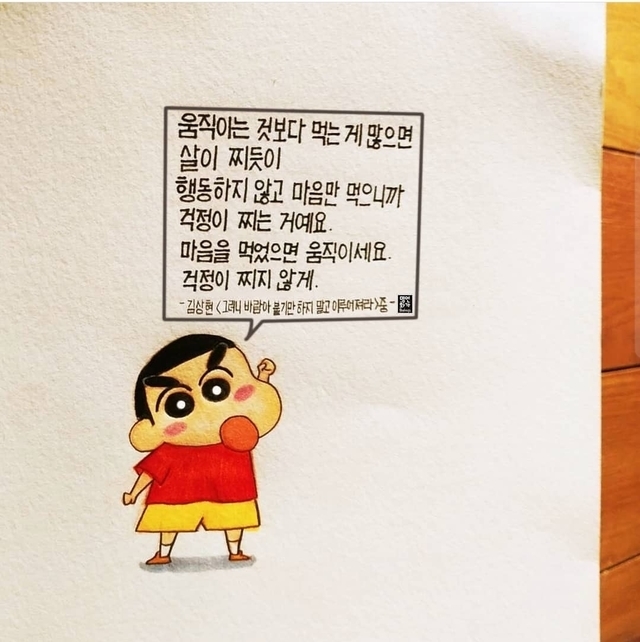 움직이는 것보다 먹는 게 많으면
살이 찌듯이
행동하지 않고 마음만 먹으니까
걱정이 찌는 거예요.
마음을 먹었으면 움직이세요.
걱정이 찌지 않게.
- 김상현 <그러니 바람아 불기만 하지 말고 이루어져라> 중 -